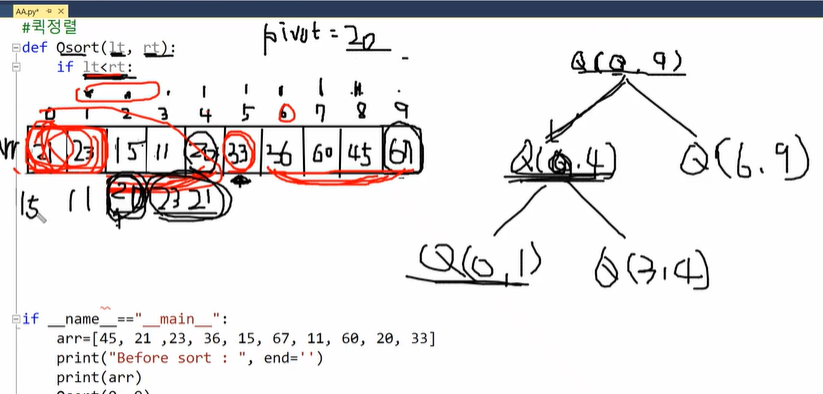 AA.py*
#퀵정렬
def Qsort(lt, rt):
if lt<rt:
pivot = 20
0 1 2 3 4 5 6 7 8 9
arr 21 23 15 11 20 33 36 60 45 67
15 11 20 23 21
Q(0, 9)
Q(0, 4) Q(6, 9)
Q(0, 1) Q(3, 4)
if __name__=="__main__":
arr=[45, 21 ,23, 36, 15, 67, 11, 60, 20, 33]
print("Before sort : ", end='')
print(arr)